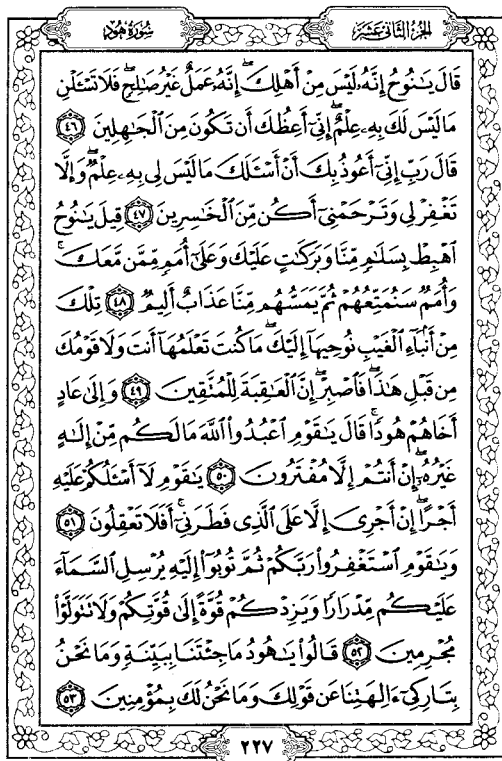 الجزء الثاني عشر
سُورَةُ هُودٍ
قَالَ يَٰنُوحُ إِنَّهُۥ لَيْسَ مِنْ أَهْلِكَۖ إِنَّهُۥ عَمَلٌ غَيْرُ صَٰلِحٖۖ فَلَا تَسْـَٔلْنِ
مَا لَيْسَ لَكَ بِهِۦ عِلْمٌۖ إِنِّيٓ أَعِظُكَ أَن تَكُونَ مِنَ ٱلْجَٰهِلِينَ ٤٦
قَالَ رَبِّ إِنِّيٓ أَعُوذُ بِكَ أَنْ أَسْـَٔلَكَ مَا لَيْسَ لِي بِهِۦ عِلْمٌۖ وَإِلَّا
تَغْفِرْ لِي وَتَرْحَمْنِيٓ أَكُن مِّنَ ٱلْخَٰسِرِينَ ٤٧ قِيلَ يَٰنُوحُ
ٱهْبِطْ بِسَلَٰمٍ مِّنَّا وَبَرَكَٰتٍ عَلَيْكَ وَعَلَىٰٓ أُمَمٍ مِّمَّن مَّعَكَۚ
وَأُمَمٌ سَنُمَتِّعُهُمْ ثُمَّ يَمَسُّهُم مِّنَّا عَذَابٌ أَلِيمٌ ٤٨ تِلْكَ
مِنْ أَنۢبَآءِ ٱلْغَيْبِ نُوحِيهَآ إِلَيْكَۖ مَا كُنتَ تَعْلَمُهَآ أَنتَ وَلَا قَوْمُكَ
مِن قَبْلِ هَٰذَاۖ فَٱصْبِرْۖ إِنَّ ٱلْعَٰقِبَةَ لِلْمُتَّقِينَ ٤٩ وَإِلَىٰ عَادٍ
أَخَاهُمْ هُودًاۚ قَالَ يَٰقَوْمِ ٱعْبُدُوا۟ ٱللَّهَ مَا لَكُم مِّنْ إِلَٰهٍ
غَيْرُهُۥٓۖ إِنْ أَنتُمْ إِلَّا مُفْتَرُونَ ٥٠ يَٰقَوْمِ لَآ أَسْـَٔلُكُمْ عَلَيْهِ
أَجْرًاۖ إِنْ أَجْرِيَ إِلَّا عَلَى ٱلَّذِي فَطَرَنِيٓۚ أَفَلَا تَعْقِلُونَ ٥١
وَيَٰقَوْمِ ٱسْتَغْفِرُوا۟ رَبَّكُمْ ثُمَّ تُوبُوٓا۟ إِلَيْهِ يُرْسِلِ ٱلسَّمَآءَ
عَلَيْكُم مِّدْرَارًا وَيَزِدْكُمْ قُوَّةً إِلَىٰ قُوَّتِكُمْ وَلَا تَتَوَلَّوْا۟
مُجْرِمِينَ ٥٢ قَالُوا۟ يَٰهُودُ مَا جِئْتَنَا بِبَيِّنَةٍ وَمَا نَحْنُ
بِتَارِكِيٓ ءَالِهَتِنَا عَن قَوْلِكَ وَمَا نَحْنُ لَكَ بِمُؤْمِنِينَ ٥٣
٢٢٧